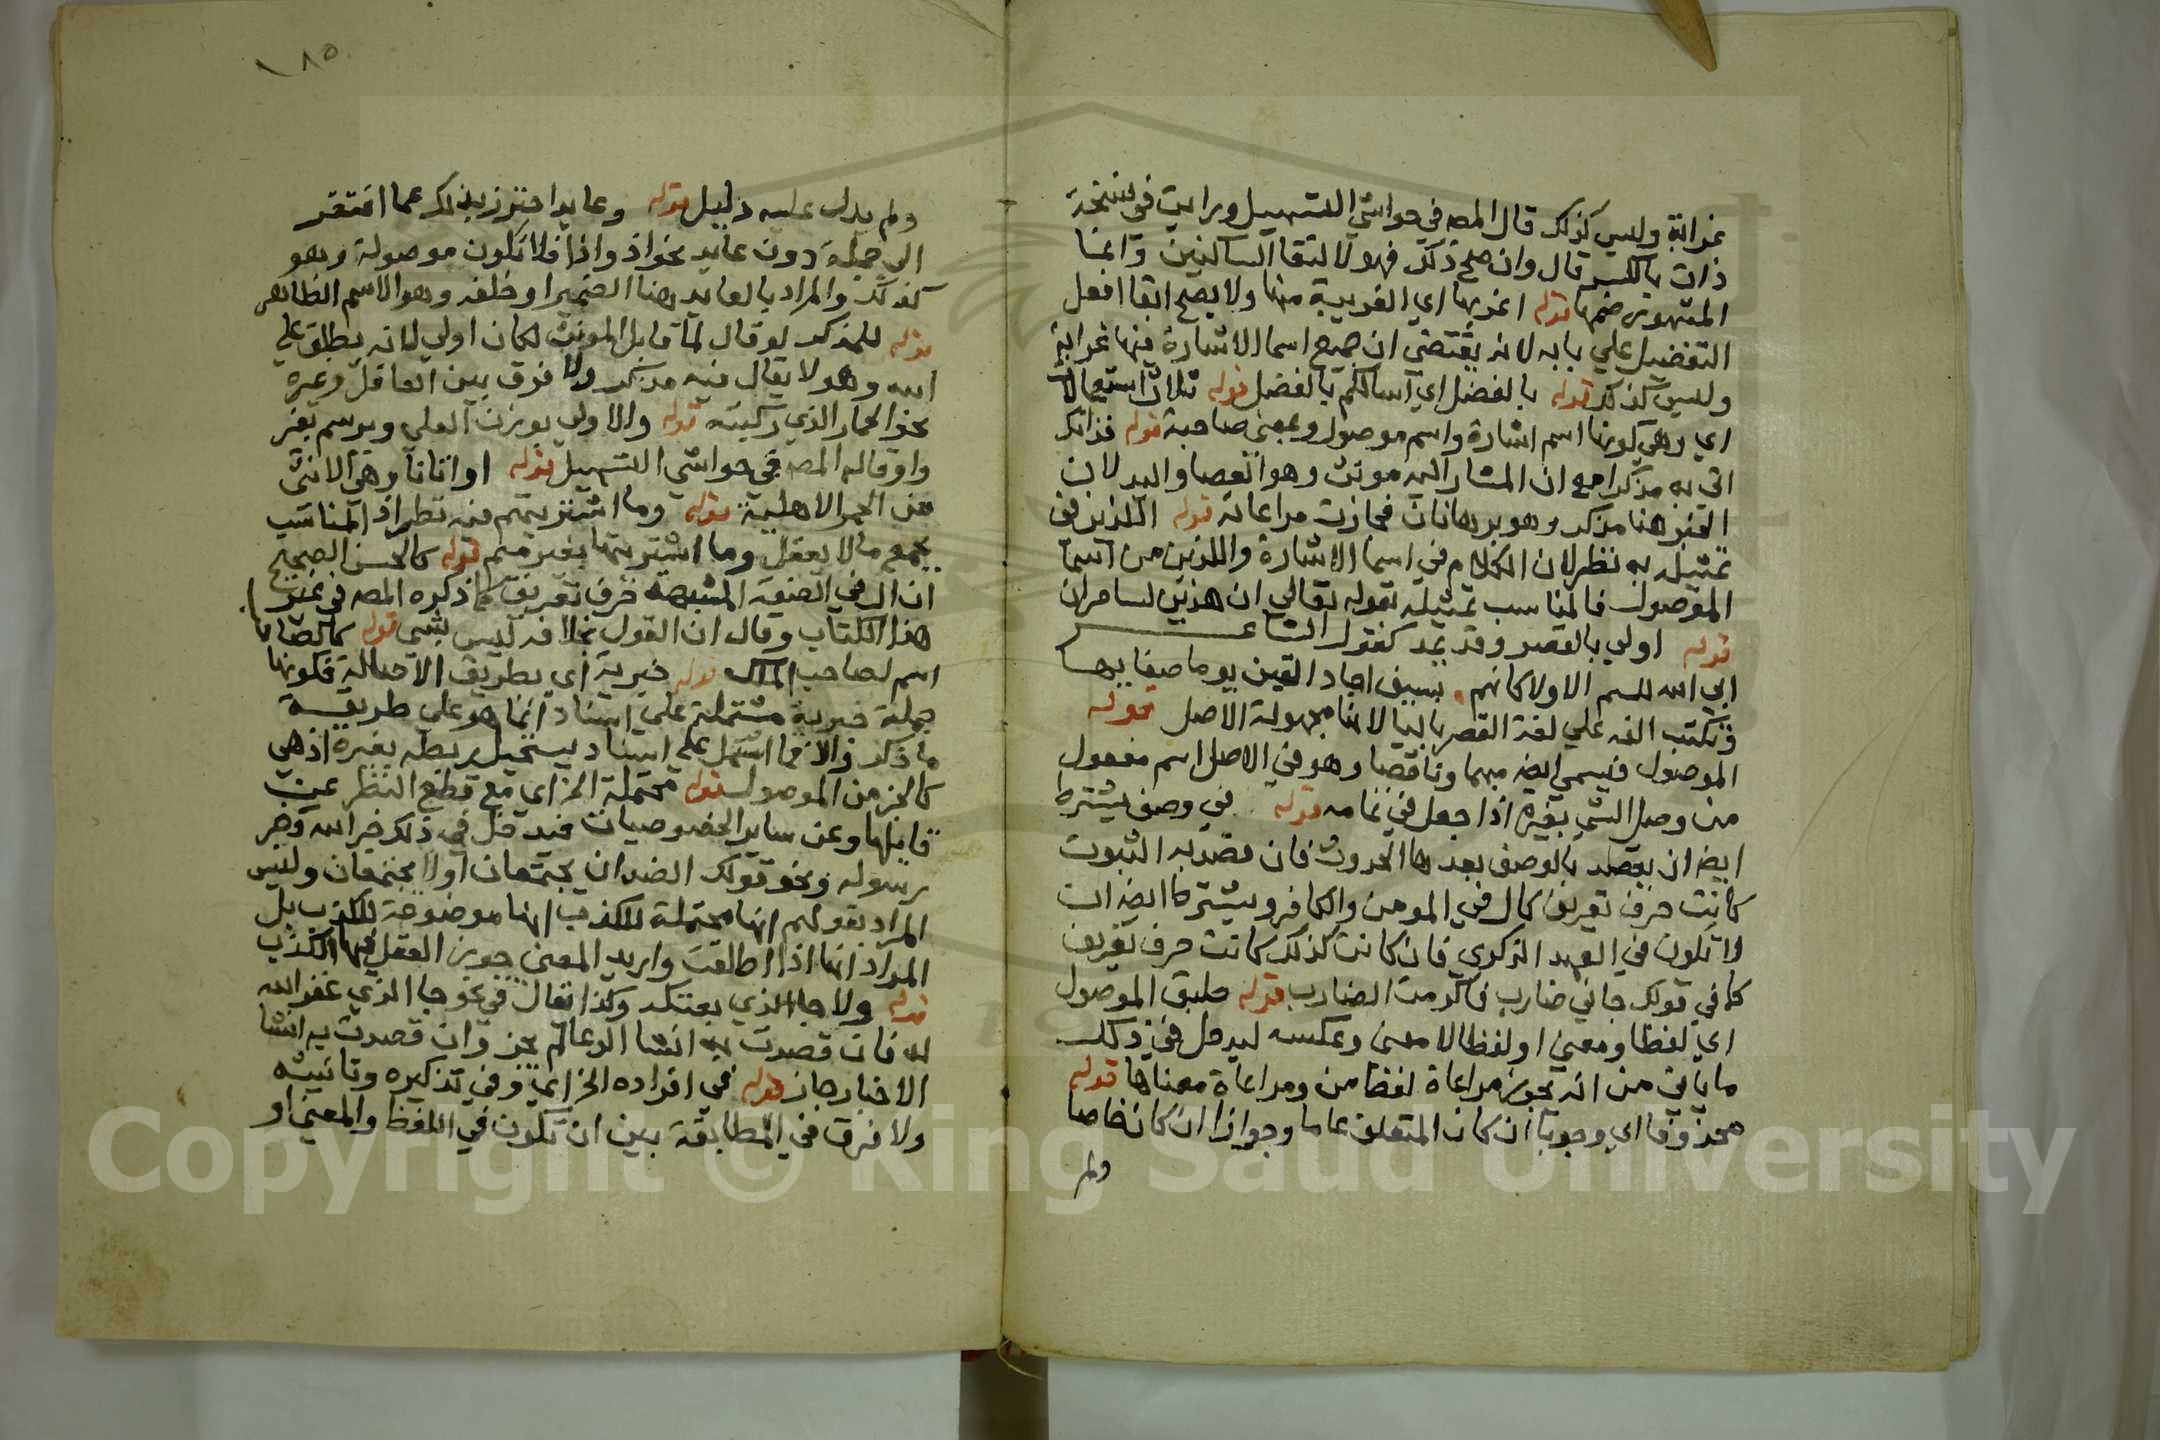 غرابة وليس كذلك قال المصه في حواشي التسهيل ورايت في نسخة
ذات بالكسر قال وان صح ذلك فهو لالتقا الساكنين وانما
المشهور ضمها قوله اغربها اي الغريبة منها ولا يصح ابقا افعل
التفضيل علي بابه لانه يقتضي ان جميع اسما الاشارة فيها غرابة
وليس كذلك قوله بالفضل اي اسالكم بالفضل قوله ثلاث استعمالات
اي وهي كونها اسم اشارة واسم موصول وبمعني صاحبة قوله فذانك
اتي به مذكرا مع ان المشار اليه مونث وهو العصا واليد لان
الخبر هنا مذكر وهو برهانان فجازت مراعاته قوله اللذين في
تمثيله به نظر لان الكلام في اسما الاشارة واللذين من اسما
الموصول فالمناسب تمثيله بقوله تعالي ان هذين لساحران
قوله اولي بالقصر وقد يمد كقول الشاعر
ابي الله للشم الالا كانهم سيوف اجاد القين يوما صقالها
وتكتب الفه علي لغة القصر باليا لانها مجهولة الاصل قوله
الموصول فيسمي ايضه مبهما وناقصا وهو في الاصل اسم مفعول
من وصل الشي بغيره اذا جعل في تمامه قوله في وصف يشترط
ايضه ان يقصد بالوصف بعدها الحدوث فان قصد به الثبوت
كانت حرف تعريف كال في المومن والكافر ويشترط ايضه ان
لا تكون في العهد الذكري فان كانت كذلك كانت حرف تعريف
كما في قولك جاني ضارب فاكرمت الضارب قوله طبق الموصول
اي لفظا ومعني او لفظا لا معني وعكسه ليدخل في ذلك
ما ياتي من انه يجوز مراعاة لفظ من ومراعاة معناها قوله
محذوفا اي وجوبا ان كان المتعلق عاما وجوازا ان كان خاصا
ولم
١٨٥
ولم يدل عليه دليل قوله وعايد احترز بذلك عما افتقر
الي جملة دون عايد نحو اذ واذا فلا تكون موصولة وهو
كذلك والمراد بالعايد هنا الضمير او خلفه وهو الاسم الظاهر
قوله للمذكر لو قال لما قابل المونث لكان اولي لانه يطلق علي
الله وهو لا يقال فيه مذكر ولا فرق بين العاقل وغيره
نحو الحمار الذي ركبته قوله والاولي بوزن العلي ويرسم بغير
واو قاله المصه في حواشي التسهيل قوله او اتانا وهي الانثي
من الحمر الاهلية قوله وما اشتريتهم فيه نظر اذ المناسب
بجمع ما لا يعقل وما اشتريتها بغير ميم قوله كالحسن الصحيح
ان ال في الصفة المشبهة حرف تعريف كما ذكره المصه في غير
هذا الكتاب وقال ان القول بخلافه ليس بشي قوله كالصاحب
اسم لصاحب الملك قوله خبرية اي بطريق الاصالة فكونها
جملة خبرية مشتملة علي اسناد انما هو علي طريقة
ما ذكر والا فما اشتمل علي اسناد يستحيل ربطه بغيره اذ هي
كالجز من الموصول قوله محتملة الخ اي مع قطع النظر عن
قايلها وعن ساير الخصوصيات فيدخل في ذلك خبر الله وخبر
رسوله ونحو قولك الضدان يجتمعان او لا يجتمعان وليس
المراد بقولهم انها محتملة للكذب انها موضوعة للكذب بل
المراد انها اذا اطلقت واريد المعني جوز العقل فيها الكذب
قوله ولا جا الذي بعتكه وكذا يقال في نحو جا الذي غفر الله
له فان قصدت به انشا الدعا لم يجز وان قصدت به انشا
الاخبار جاز قوله في افراده الخ اي وفي تذكيره وتانيثه
ولا فرق في المطابقة بين ان تكون في اللفظ والمعني او
Copyright © King Saud University